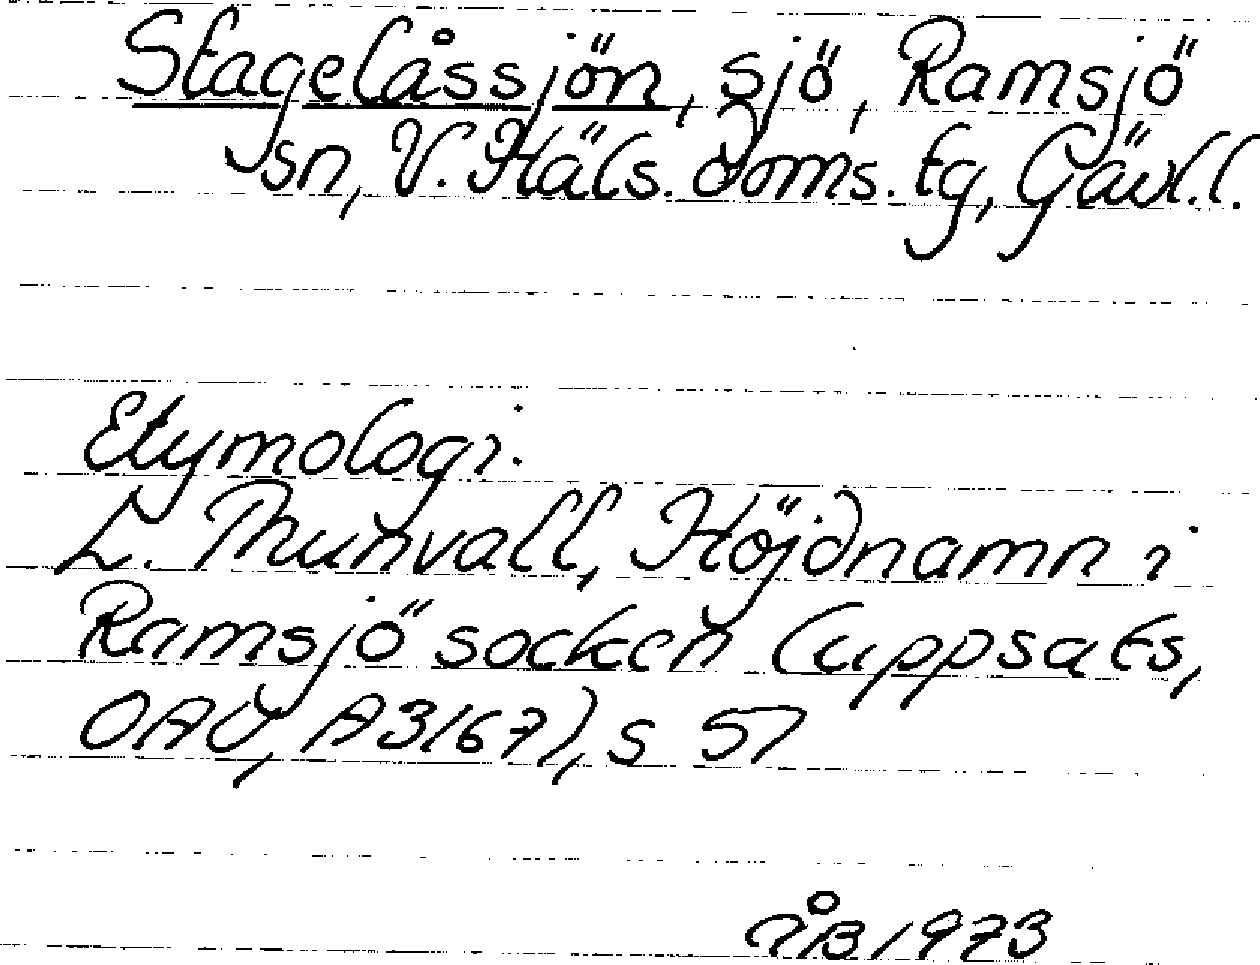 Stagelåssjön, sjö, Ramsjö
sn, V. Häls. doms. tg, Gävl.l.
Etymologi.
L. Thunvall, Höjdnamn i
Ramsjö socken (uppsats,
OAU, A3167), s 57
ÅB 1973